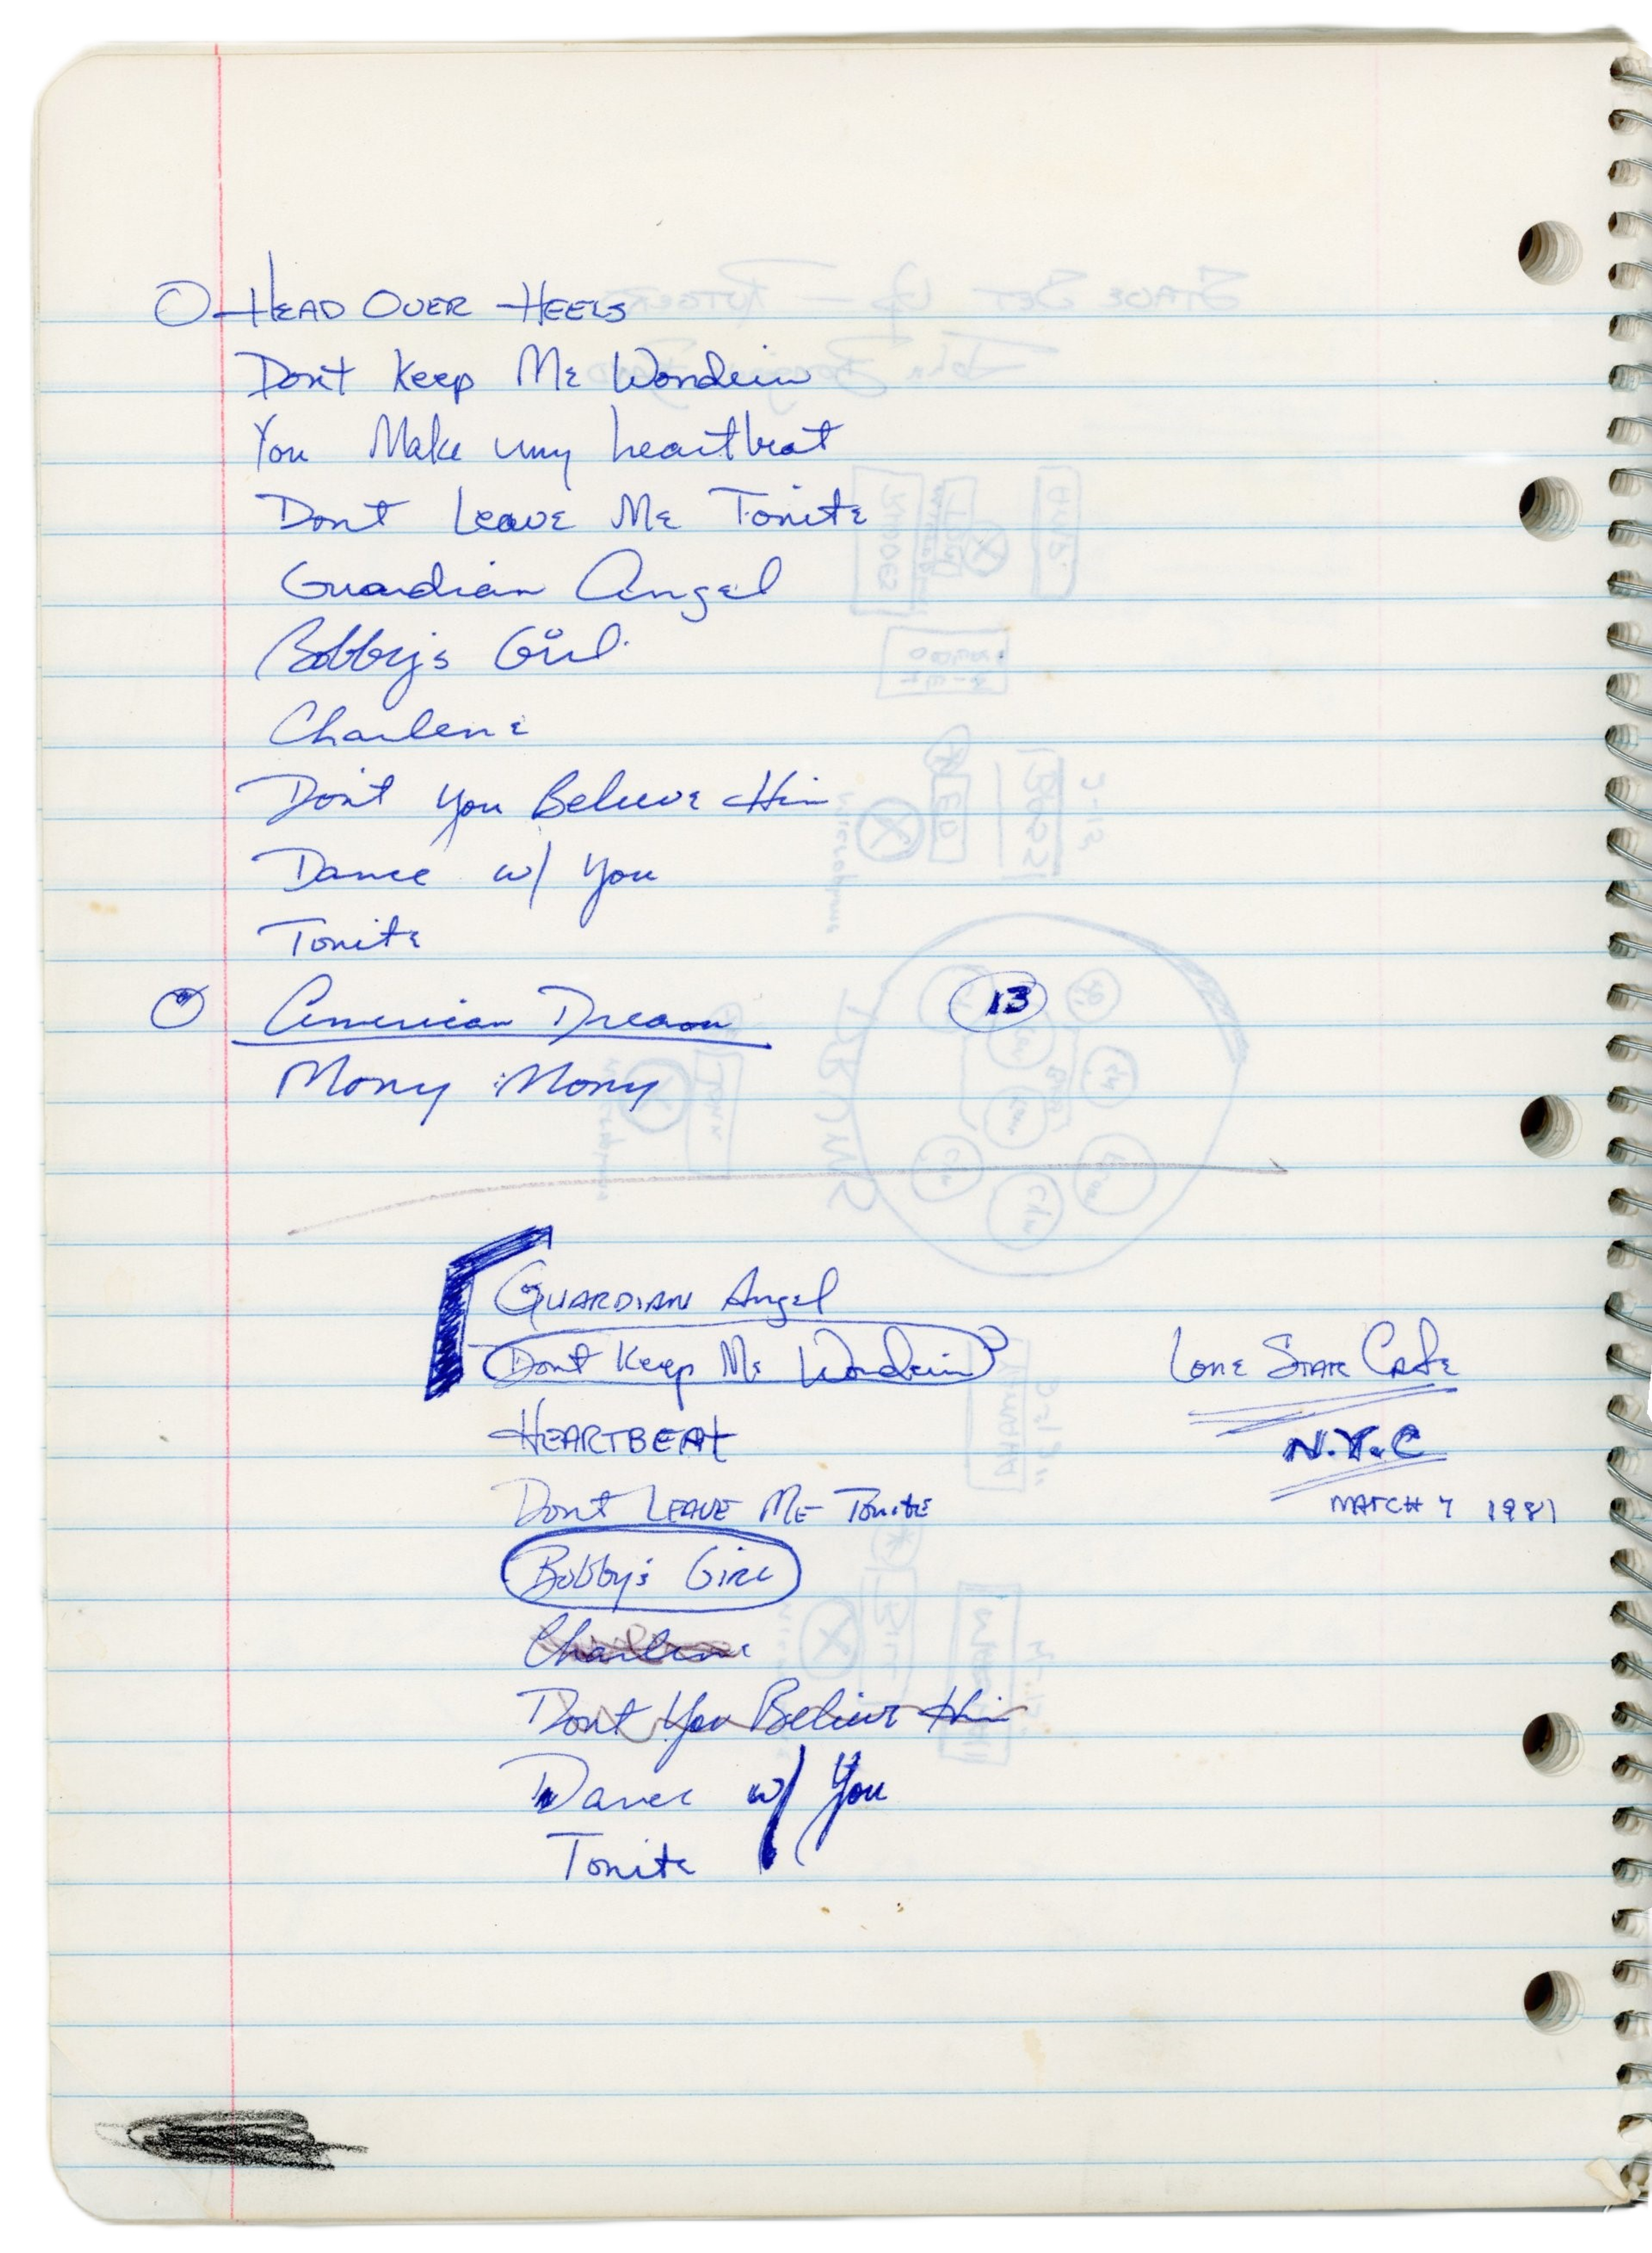 HEAD OVER HEELS
Don't Keep Me Wonderin
You Make my heartbeat
Dont Leave Me Tonite
Guardian Angel
Bobby's Girl
Charlene
Don't You Believe Him
Dance w/ You
Tonite
American Dream 13
Mony Mony
GUARDIAN Angel
Dont Keep Me Wonderin
HEARTBEAT
Dont LEAVE ME Tonite
Bobby's Girl
Charlene
Dont You Believe Him
Dance w/ You
Tonite
LONE STAR CAFE
N.Y.C
MARCH 7 1981